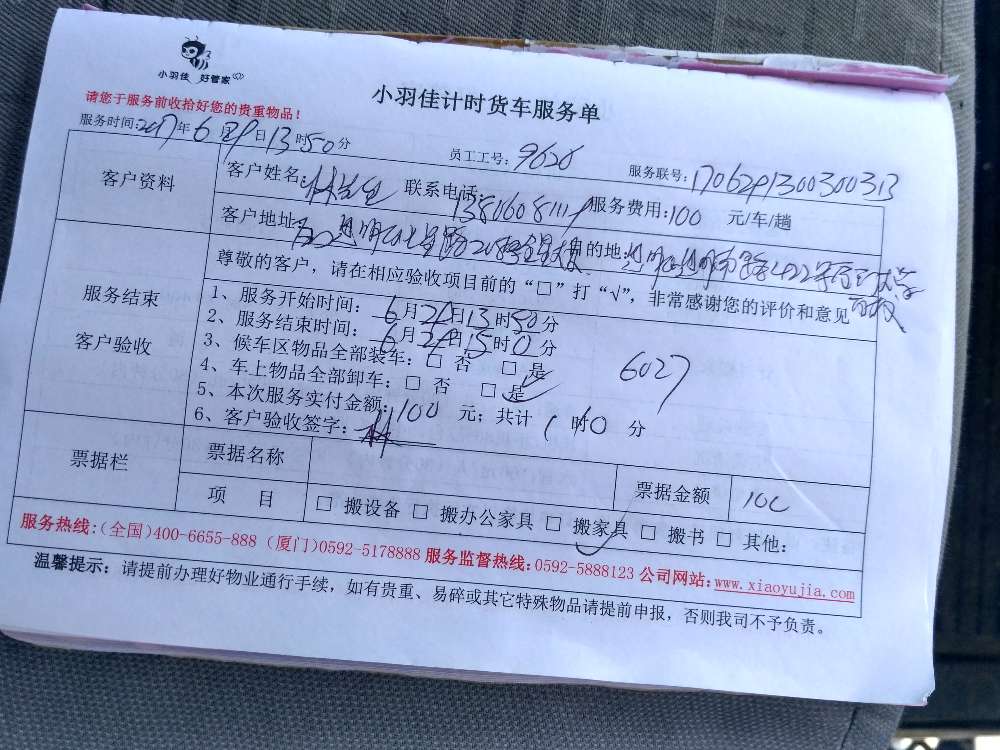 小羽佳 好管家
小羽佳计时货车服务单
请您于服务前收拾好您的贵重物品！
服务时间:2017年6月29日13时50分 员工工号:9628 服务联号:1706291300300313
客户资料 客户姓名: 林先生 联系电话: 服务费用:100 元/车/趟
客户地址: 目的地:
服务结束
客户验收
尊敬的客户，请在相应验收项目前的“□”打“√”，非常感谢您的评价和意见
1、服务开始时间: 6月29日13时50分
2、服务结束时间: 6月29日15时0分
3、候车区物品全部装车: □ 否 □ 是
4、车上物品全部卸车: □ 否 □ 是
6027
5、本次服务实付金额: 100 元; 共计 1 时 10 分
6、客户验收签字: 林
票据栏 票据名称 票据金额 100
项 目 □ 搬设备 □ 搬办公家具 □ 搬家具 □ 搬书 □ 其他:
服务热线:(全国)400-6655-888 (厦门)0592-5178888 服务监督热线:0592-5888123 公司网站:www.xiaoyujia.com
温馨提示: 请提前办理好物业通行手续，如有贵重、易碎或其它特殊物品请提前申报，否则我司不予负责。